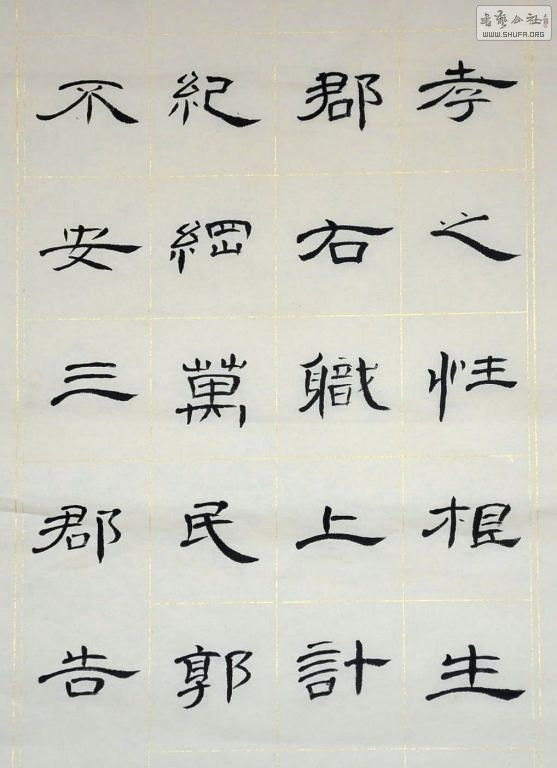 孝之性根生
郡右軄上計
紀綱萬民郭
不安三郡告
書藝公社
WWW.SHUFA.ORG